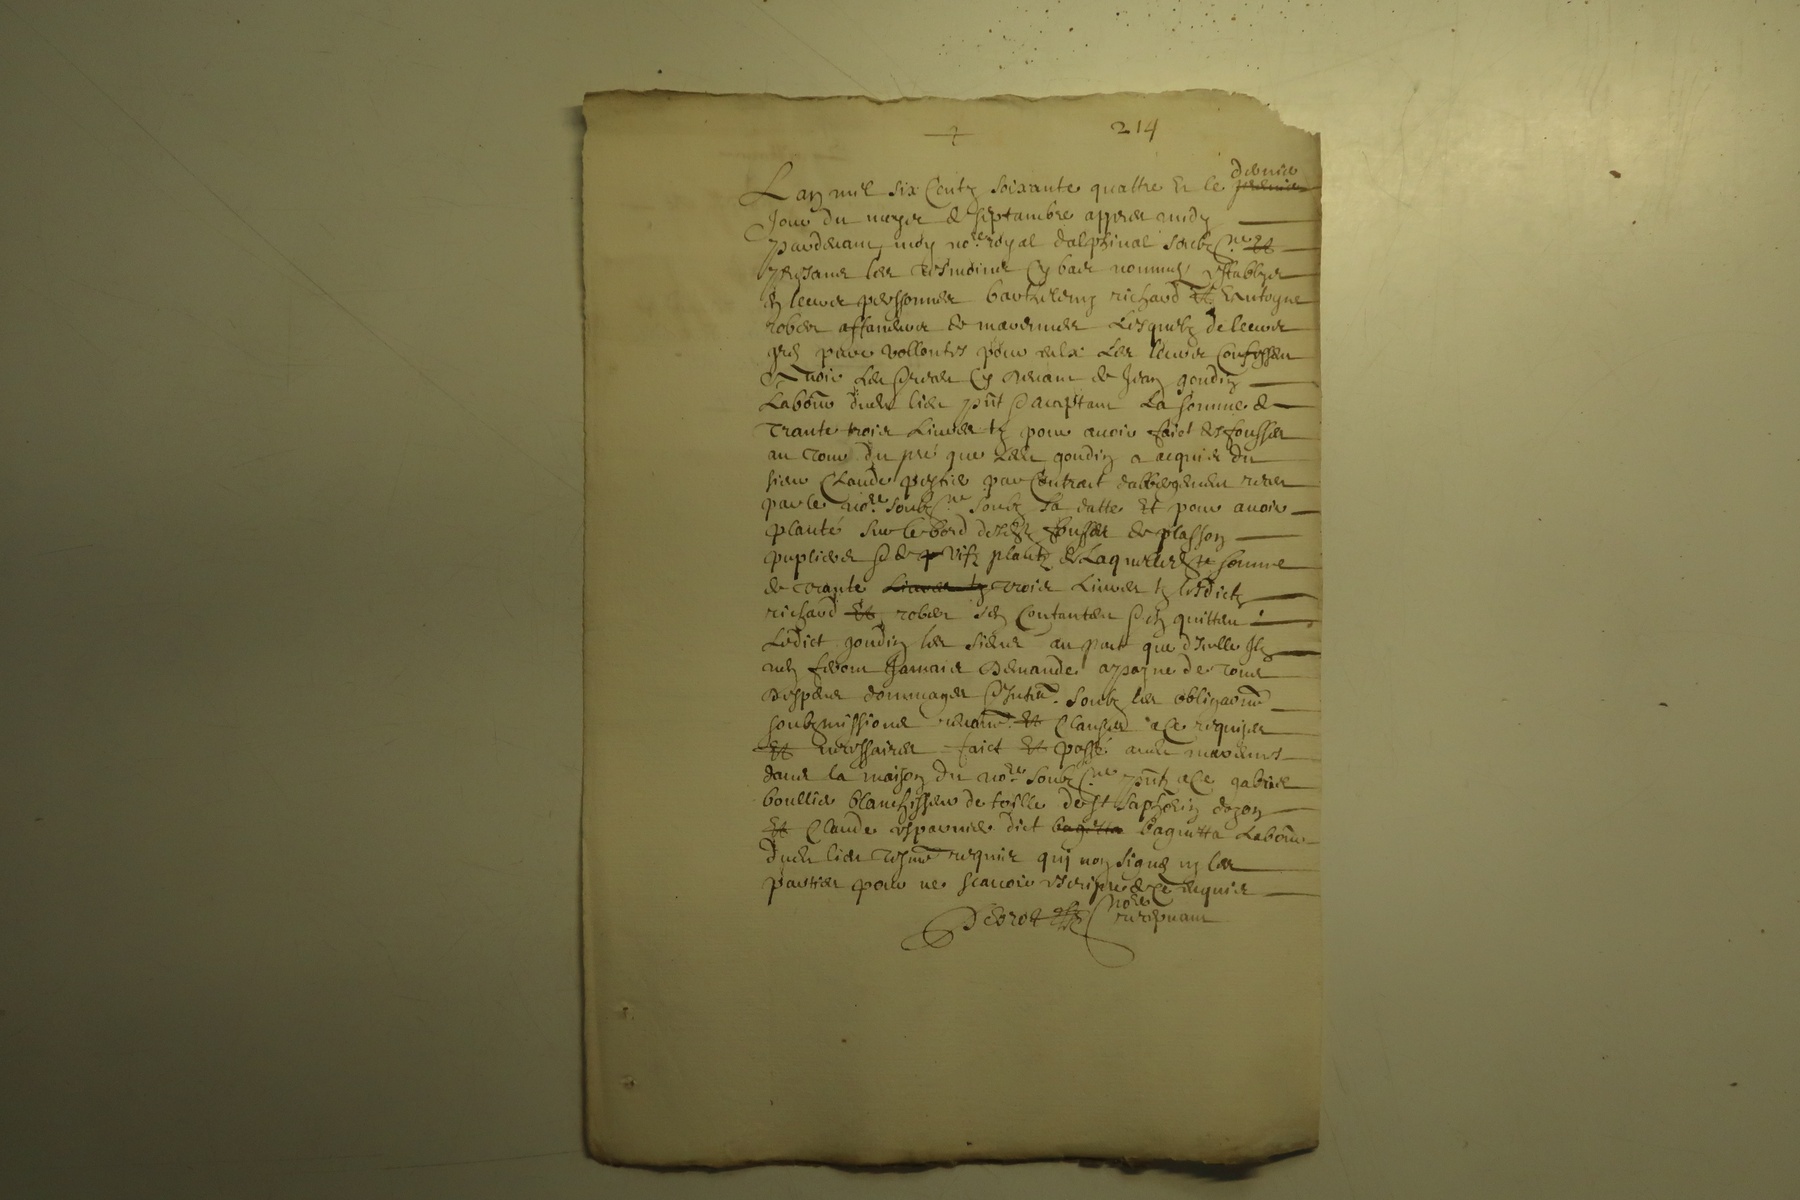 214
Lan mil six Centz soixante quattre Et le dernier
Jour du moyes de septambre appres midy
pardevant moy no.re royal dalphinal soubz.ne Et
presans les tesmoins Cy bas nommes establyes
En leurs perssonnes barthelemy richard Et Entoyne
rober affaneurs de marennes Lesquelz de leurs
gres pure vollontes pour eulx Les leurs Confessent
avoir Cy devant de Jean goudin
Labour dudit lieu pnt acceptant La somme de
Trante trois Livres tz pour avoir faict des fousses
au tour du pré que Ledit goudin a acquis du
sieur Claude par Contract dalbergement receu
par le no.re soubz.ne soubz sa datte Et pour avoir
planté sur le bord desditz fousses de plasson
pupliers de vifz plantz de Laquelle somme
de trante Livres tz trois Livres tz lesdictz
richard Et rober sen Contantent en quittent
Ledict goudin les siens au pact que dicelle Ilz
nen feront Jamais demande appayne de tous
despens dommages Intht. soubz les obligaons
soubzmissions Et Clauses a Ce requises
Et necessaires faict Et passé audit marennes
dans la maison du no.re soubz.ne pntz a Ce gabriel
boullier blanchisseur de toille de St saphorin dozon
Et Claude esparnier dict bagutta baguetta Labour
dudit lieu tesmoins requis quy non signé ny les
parties pour ne scavoir escripre de Ce enquis
no.re
recepvant